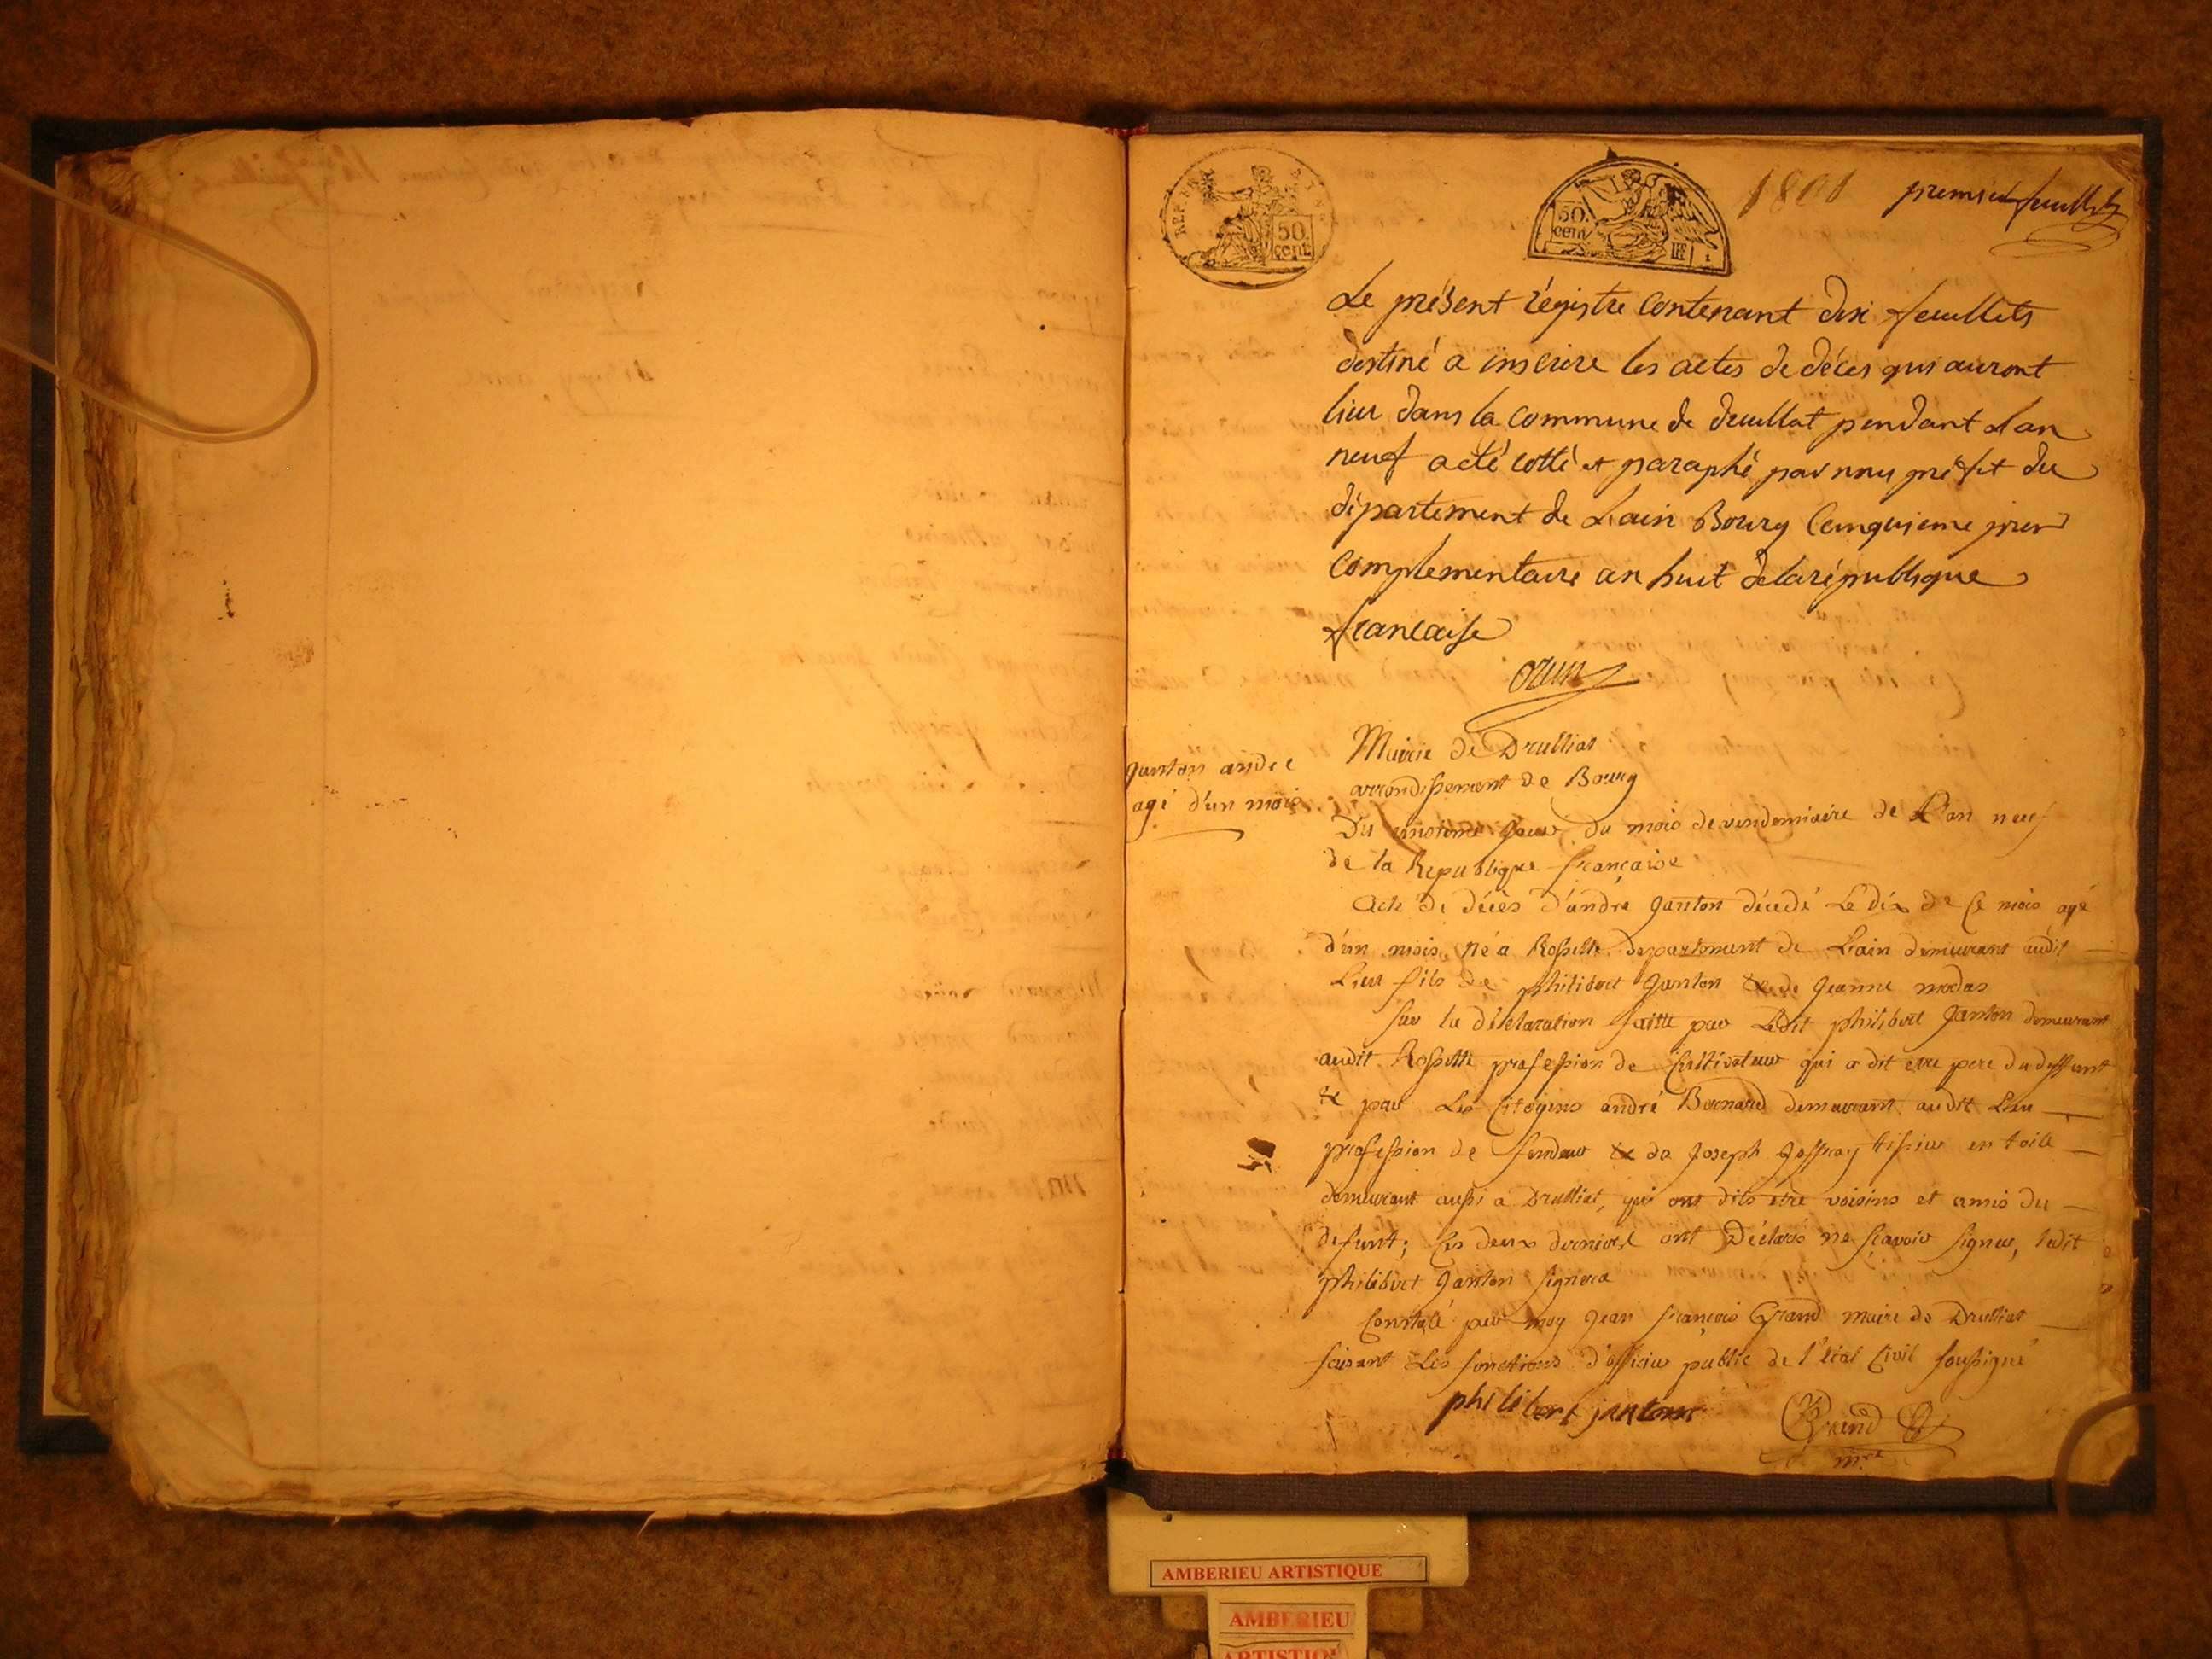 REP. FRA
50.
cent
50.
cent
1801 premier feuillet
Le présent régistre Contenant dix feuillets
destiné a inscrire les actes de décès qui auront
lieu dans la commune de druillat pendant L'an
neuf a été cotté et paraphé par nous préfet du
département de L'ain Bourg Cinquieme jour
Complementaire an huit de la république
francaise
Janton andre
agé d'un mois
Mairie de Drulliat
arrondissement de Bourg
Du jour du mois de vendemiaire de L'an neuf
de la Republique française
Acte de décès d'andré Janton décedé Le dix de Ce mois agé
d'un mois, né a Rossette departement de L'ain demeurant audit
Lieu fils de philibert Janton & de Jeanne modas
sur la déclaration faitte par Ledit philibert Janton demeurant
audit Rossette profession de Cultivateur qui a dit etre pere du deffunt
& par Les Citoyens andré Bernard demeurant audit Lieu
profession de fendeur & de Joseph Joffray tissier en toile
demeurant aussi a Drulliat, qui ont dits etre voisins et amis du
defunt; Ces deux derniers ont Déclarés ne sçavoir signer, ledit
philibert Janton signera
Constaté par moy Jean françois Grand maire de Drulliat
faisant Les fonctions d'officier public de l'état Civil soussigné
philibert janton
Grand
m.re
AMBERIEU ARTISTIQUE
AMBERIEU
ARTISTIQ